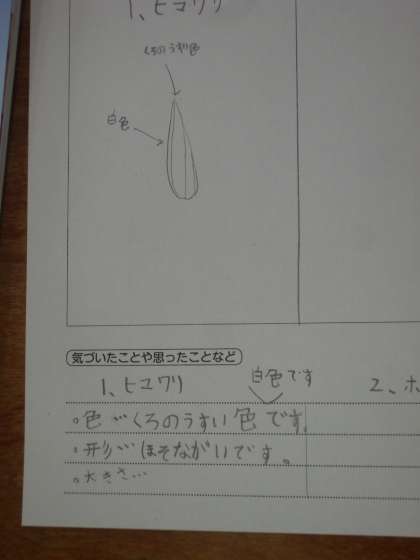 1、ヒマワリ
くろのうすい色
白色
気づいたことや思ったことなど
1、ヒマワリ 白色です 2、ホ
。色がくろのうすい色です。
。形がほそながいです。
。大きさ…